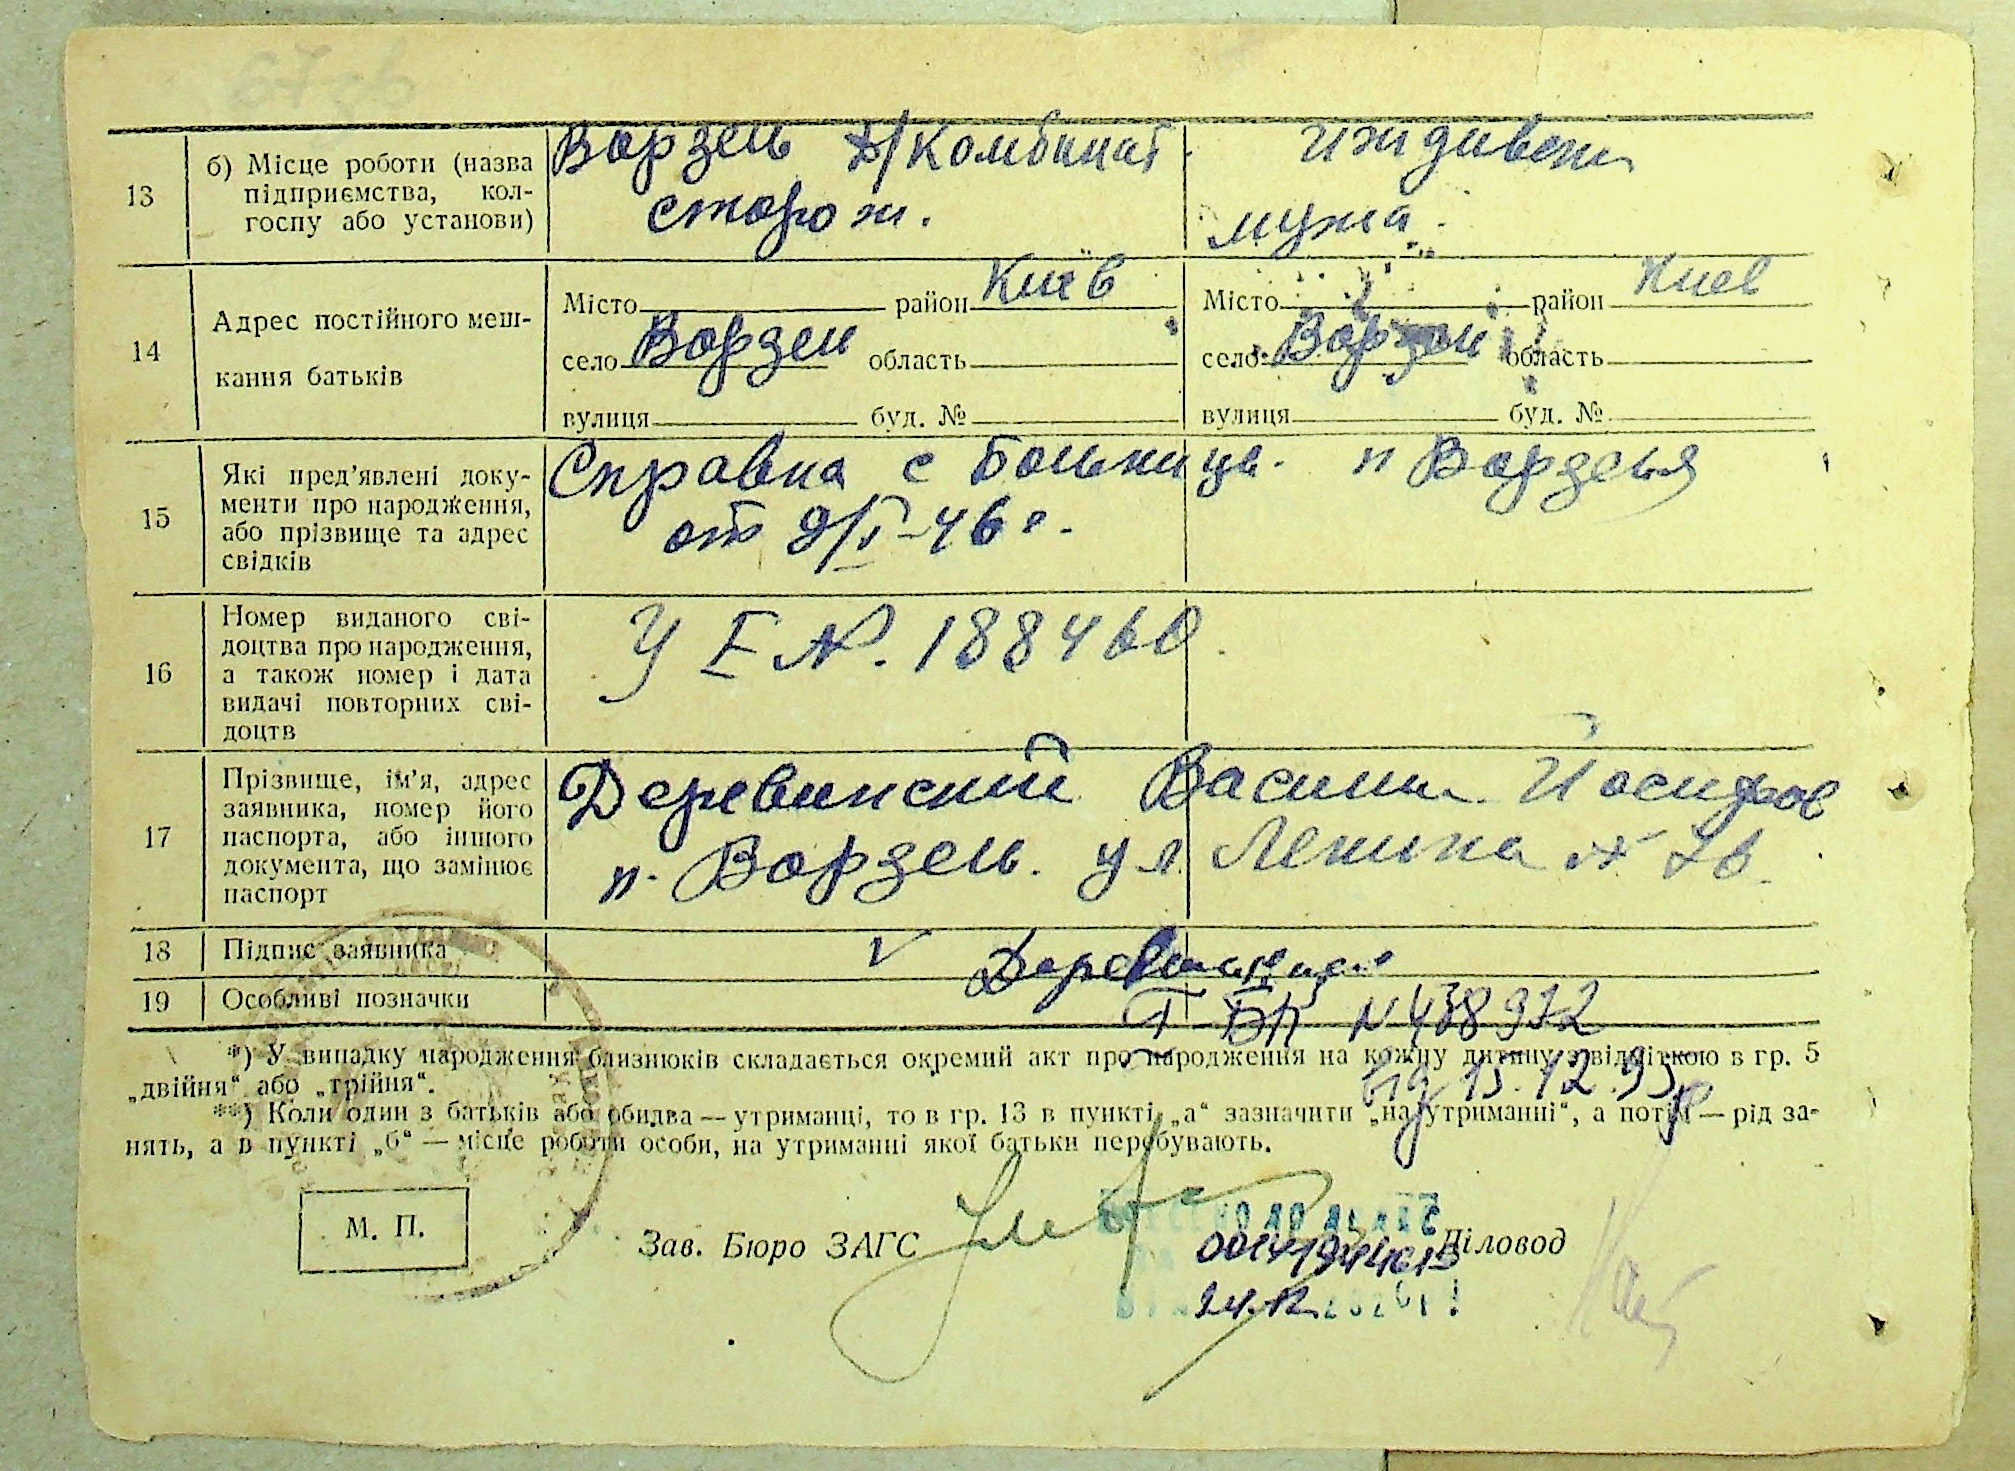 13
б) Місце роботи (назва
підприємства, кол-
госпу або установи)
Ворзель Д/Комбинат
сторож.
иждивен
мужа
14
Адрес постійного меш-
кання батьків
Місто район Київ
село Ворзель область
вулиця буд. №
Місто район Киев
село Ворзель область
вулиця буд. №
15
Які пред'явлені доку-
менти про народження,
або прізвище та адрес
свідків
Справка с Больниць. п Ворзеля
от 9/I-46 г.
16
Номер виданого сві-
доцтва про народження,
а також номер і дата
видачі повторних сві-
доцтв
У І №. 188460
17
Прізвище, ім'я, адрес
заявника, номер його
паспорта, або іншого
документа, що замінює
паспорт
Василь Йосифов
п. Ворзель. ул Ленина №
18
Підпис заявника
19
Особливі позначки
І БК N 438972
*) У випадку народження близнюків складається окремий акт про народження на кожну дитину з відміткою в гр. 5
„двійня“ або „трійня“.
від 15.12.93р
**) Коли один з батьків або обидва — утриманці, то в гр. 13 в пункті „а“ зазначити „на утриманні“, а потім — рід за-
нять, а в пункті „б“ — місце роботи особи, на утриманні якої батьки перебувають.
М. П.
Зав. Бюро ЗАГС
Діловод
24.12.